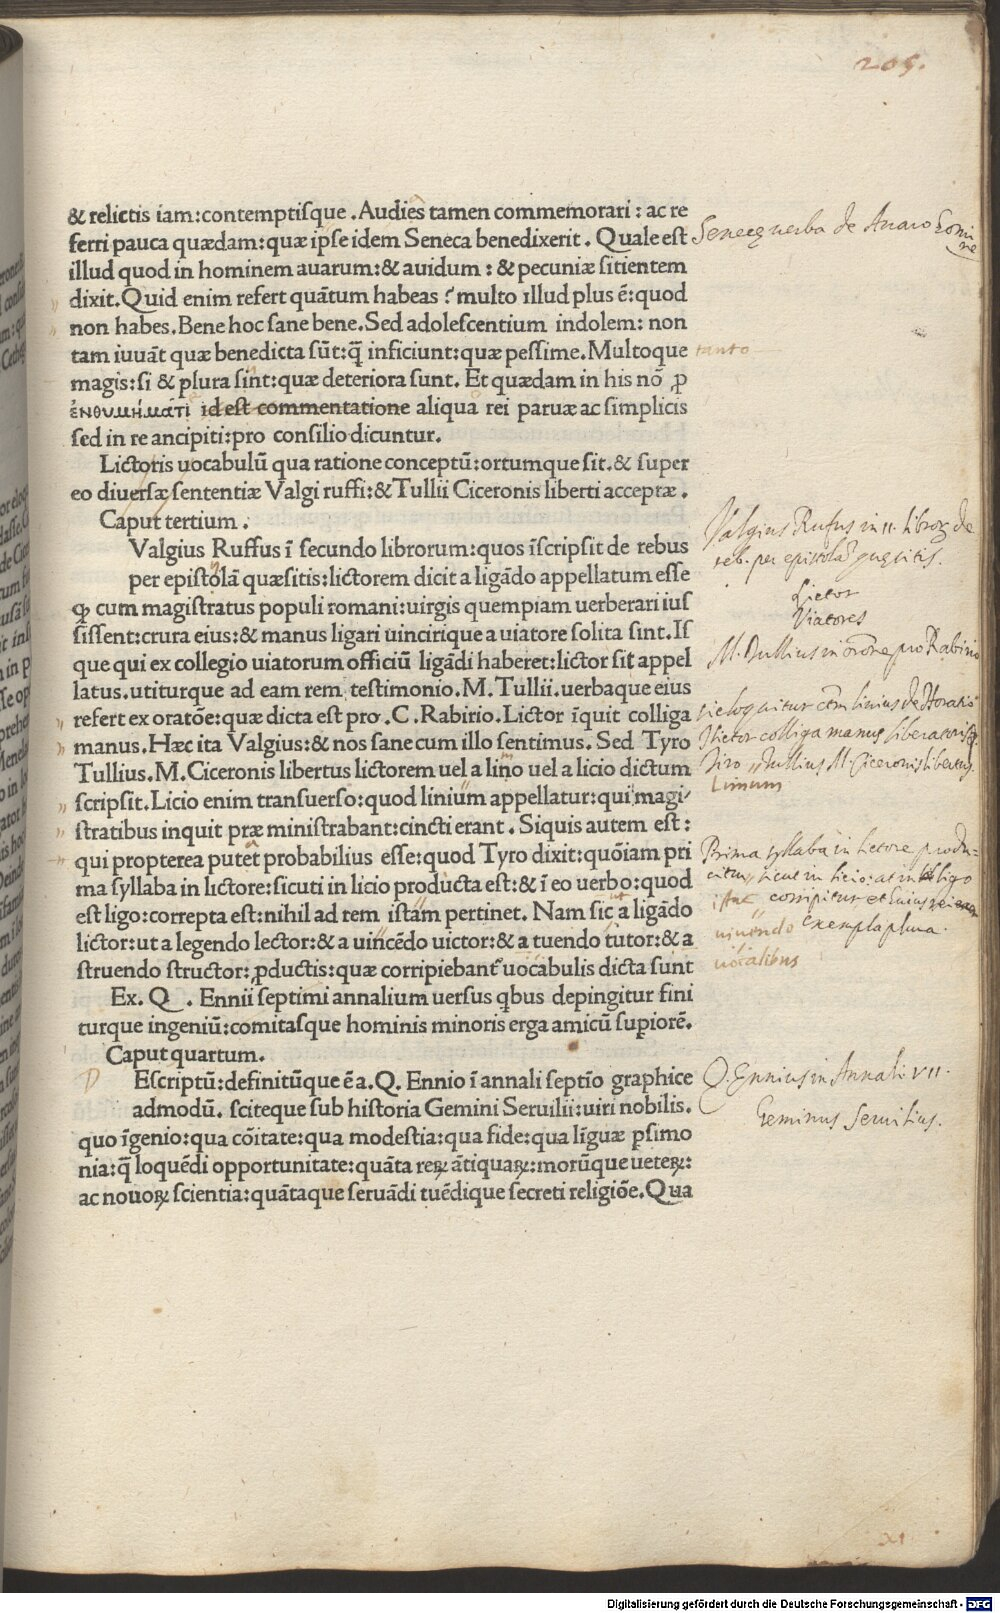 205.
& relictis iam:contemptiſque .Audies tamen commemorari : ac re
ferri pauca quædam:quæ ipſe idem Seneca benedixerit . Quale eſt
Senecę uerba de Auaro homi
ne
illud quod in hominem auarum:& auidum : & pecuniæ ſitientem
dixit.Quid enim refert quãtum habeas ? multo illud plus ẽ:quod
non habes.Bene hoc ſane bene.Sed adoleſcentium indolem: non
tam iuuãt quæ benedicta ſũt:q̃ inficiunt:quæ peſſime.Multoque
tanto
magis:ſi & plura ſint:quæ deteriora ſunt. Et quædam in his nõ ꝓ
ἐνθυμήματί id eſt commentatione aliqua rei paruæ ac ſimplicis
ſed in re ancipiti:pro conſilio dicuntur.
Lictoris uocabulũ qua ratione conceptũ:ortumque ſit.& ſuper
eo diuerſæ ſententiæ Valgi ruffi:& Tullii Ciceronis liberti acceptæ .
Caput tertium .
Valgius Rufus in II. libroꝝ de
reb. per epistolã quęsitis.
Valgius Ruffus ĩ ſecundo librorum:quos ĩſcripſit de rebus
per epiſtolã quæſitis:lictorem dicit a ligãdo appellatum eſſe
Lictor
Viatores
ꝙ cum magiſtratus populi romani:uirgis quempiam uerberari iuſ
ſiſſent:crura eius:& manus ligari uincirique a uiatore ſolita ſint.Iſ
que qui ex collegio uiatorum officiũ ligãdi haberet:lictor ſit appel
M. Tullius in orõne pro Rabirio
latus.utiturque ad eam rem teſtimonio.M.Tullii.uerbaque eius
refert ex oratõe:quæ dicta eſt pro .C.Rabirio.Lictor ĩquit colliga
manus.Hæc ita Valgius:& nos ſane cum illo ſentimus. Sed Tyro
Tullius.M.Ciceronis libertus lictorem uel a lino uel a licio dictum
Tiro Tullius M. Ciceronis libertus
Limum
ſcripſit.Licio enim tranſuerſo:quod linium appellatur:qui magi/
ſtratibus inquit præ miniſtrabant:cincti erant . Siquis autem eſt:
qui propterea putet probabilius eſſe:quod Tyro dixit:quõiam pri
Prima syllaba in lictore produ-
ma ſyllaba in lictore:ſicuti in licio producta eſt:& ĩ eo uerbo:quod
eſt ligo:correpta eſt:nihil ad rem iſtam pertinet. Nam ſic a ligãdo
lictor:ut a legendo lector:& a uincẽdo uictor:& a tuendo tutor:& a
uiuendo
exempla plura.
ſtruendo ſtructor: ꝓductis:quæ corripiebant̃ uocabulis dicta ſunt
uocalibus
Ex. Q . Ennii ſeptimi annalium uerſus qbus depingitur fini
turque ingeniũ:comitaſque hominis minoris erga amicũ ſupiorẽ.
Caput quartum.
D
Eſcriptũ:definitũque ẽ a.Q. Ennio ĩ annali ſeptĩo graphice
Q. Ennius in Annali VII.
admodũ. ſciteque ſub hiſtoria Gemini Seruilii:uiri nobilis.
Geminus Seruilius.
quo ĩgenio:qua cõitate:qua modeſtia:qua fide:qua lĩguæ ꝑſimo
nia:q̃ loquẽdi opportunitate:quãta reꝝ ãtiquaꝝ:morũque ueteꝝ:
ac nouoꝝ ſcientia:quãtaque ſeruãdi tuẽdique ſecreti religiõe.Qua
XI
Digitalisierung gefördert durch die Deutsche Forschungsgemeinschaft - DFG